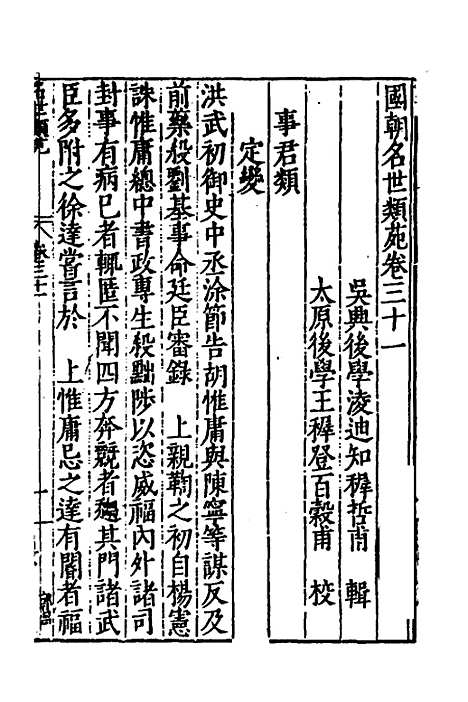 國朝名世類苑卷三十一
吳興後學淩迪知穉哲甫 輯
太原後學王穉登百穀甫 校
事君類
定變
洪武初御史中丞涂節告胡惟庸與陳寧等謀反及
前藥殺劉基事命廷臣審錄 上親鞫之初自楊憲
誅惟庸總中書政專生殺黜陟以恣威福內外諸司
封事有病己者輒匿不聞四方奔競者趨其門諸武
臣多附之徐達嘗言於 上惟庸忌之達有閽者福
名世類苑
卷三十一
一